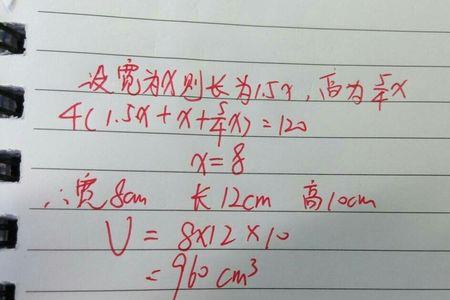 设宽为x则长为1.5x,高为5/4x
4(1.5x+x+5/4x)=120
x=8
∴宽8cm 长12cm 高10cm
V=8×12×10
=960cm³